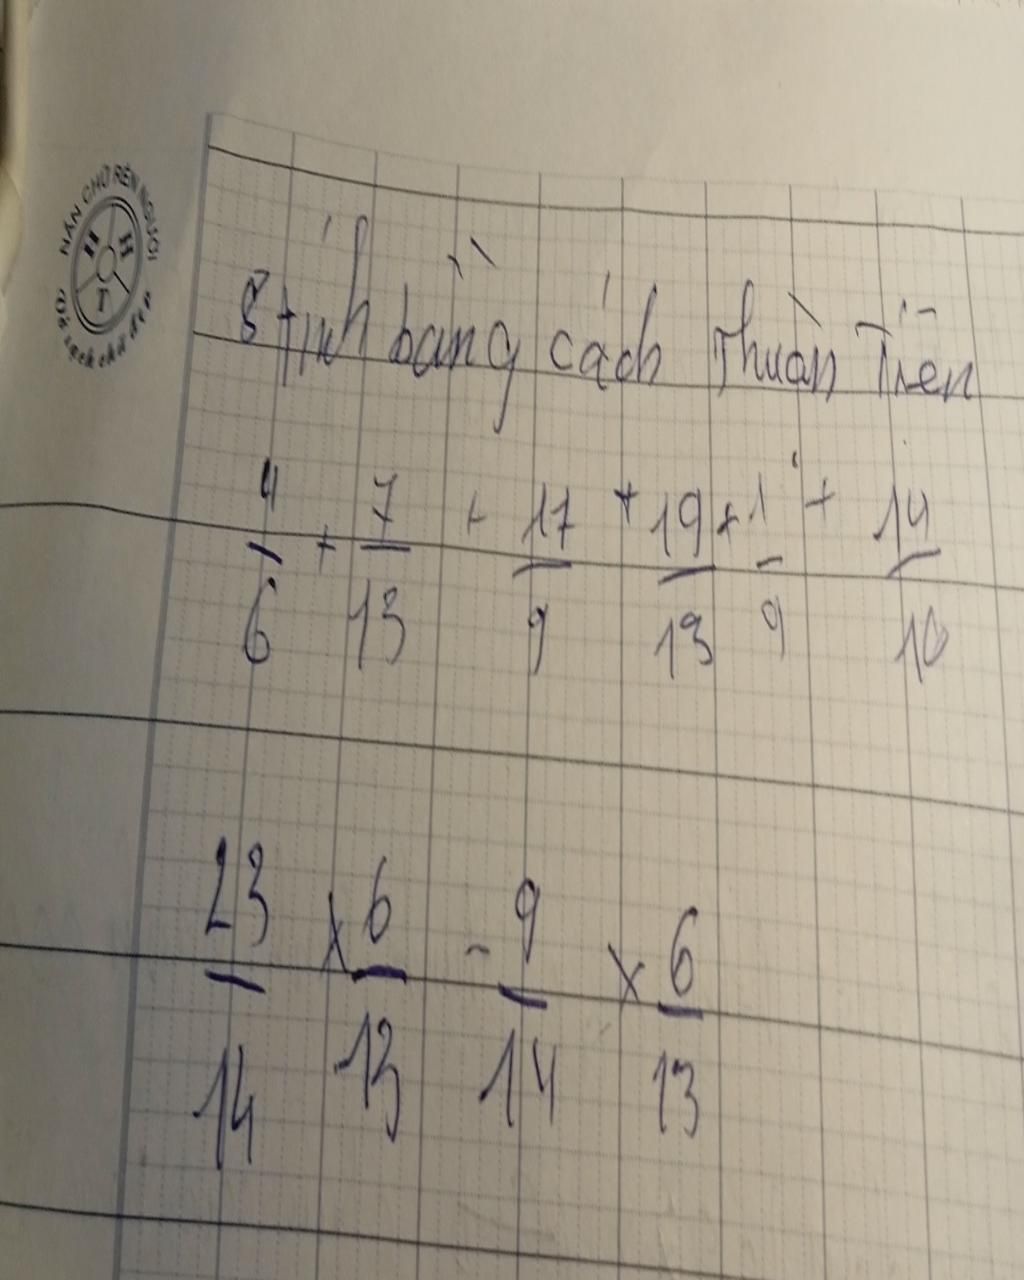 NẮN CHỮ RÈN NGƯỜI
H H T
Vở sạch chữ đẹp
8 tính bằng cách Thuận Tiện
4/6 + 7/13 + 17/9 + 19/13 + 1/9 + 14/10
23/14 x 6/13 - 9/14 x 6/13